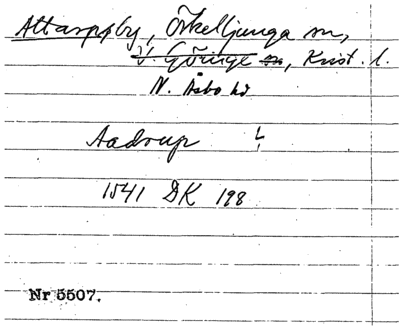 Attarpsby, Örkelljunga sn,
V. Göinge sn, Krist. l.
N. Åsbo hd
Aadrup L
1541 DK 198
Nr 5507.